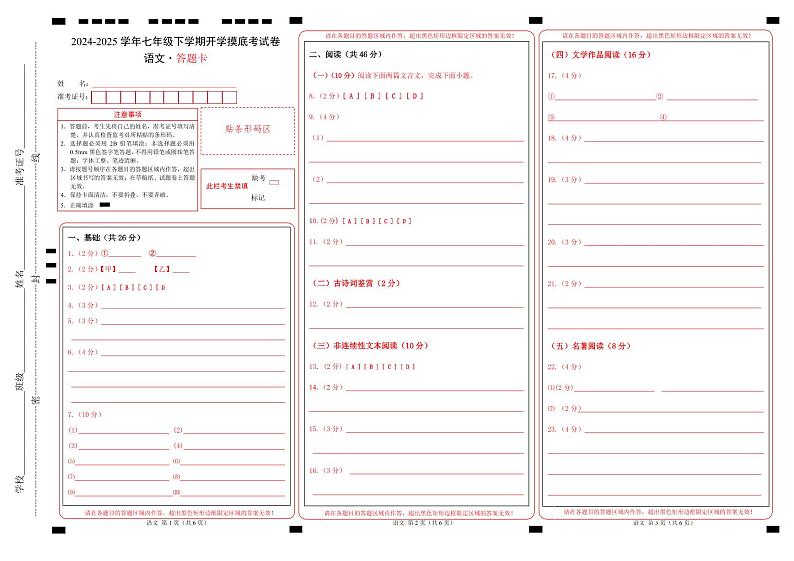 2024-2025 学年七年级下学期开学摸底考试卷
语文·答题卡
姓 名：
准考证号：
注意事项
1．答题前，考生先将自己的姓名，准考证号填写清
楚，并认真检查监考员所粘贴的条形码。
2．选择题必须用 2B 铅笔填涂；非选择题必须用
0.5mm 黑色签字笔答题，不得用铅笔或圆珠笔答
题；字体工整、笔迹清晰。
3．请按题号顺序在各题目的答题区域内作答，超出
区域书写的答案无效；在草稿纸、试题卷上答题
无效。
4．保持卡面清洁，不要折叠、不要弄破。
5．正确填涂
贴条形码区
此栏考生禁填
缺考
标记
一、基础（共 26 分）
1.（2 分）① ②
2.（2 分）【甲】 【乙】
3.（2 分）[ A ] [ B ] [ C ] [ D
4.（3 分）
5.（3 分）
6.（4 分）
7.（10 分）
⑴ ⑵
⑶ ⑷
⑸ ⑹
⑺ ⑻
⑼ ⑽
请在各题目的答题区域内作答，超出黑色矩形边框限定区域的答案无效！
语文 第 1 页（共 6 页）
请在各题目的答题区域内作答，超出黑色矩形边框限定区域的答案无效！
二、阅读（共 46 分）
（一）（10 分）阅读下面两篇文言文，完成下面小题。
8.（2 分）[ A ] [ B ] [ C ] [ D ]
9.（4 分）
（1）
（2）
10.（2 分）[ A ] [ B ] [ C ] [ D ]
11.（2 分）
（二）古诗词鉴赏（2 分）
12.（2 分）
（三）非连续性文本阅读（10 分）
13.（2 分）[ A ] [ B ] [ C ] [ D ]
14.（2 分）
15.（3 分）
16.（3 分）
请在各题目的答题区域内作答，超出黑色矩形边框限定区域的答案无效！
语文 第 2 页（共 6 页）
请在各题目的答题区域内作答，超出黑色矩形边框限定区域的答案无效！
（四）文学作品阅读（16 分）
17.（4 分）
① ②
③ ④
18.（4 分）
19.（3 分）
20.（3 分）
21.（2 分）
（五）名著阅读（8 分）
22.（4 分）
⑴(2 分)
⑵ （2 分）
23.（4 分）
请在各题目的答题区域内作答，超出黑色矩形边框限定区域的答案无效！
语文 第 3 页（共 6 页）
学校 班级 姓名 准考证号
密 封 线